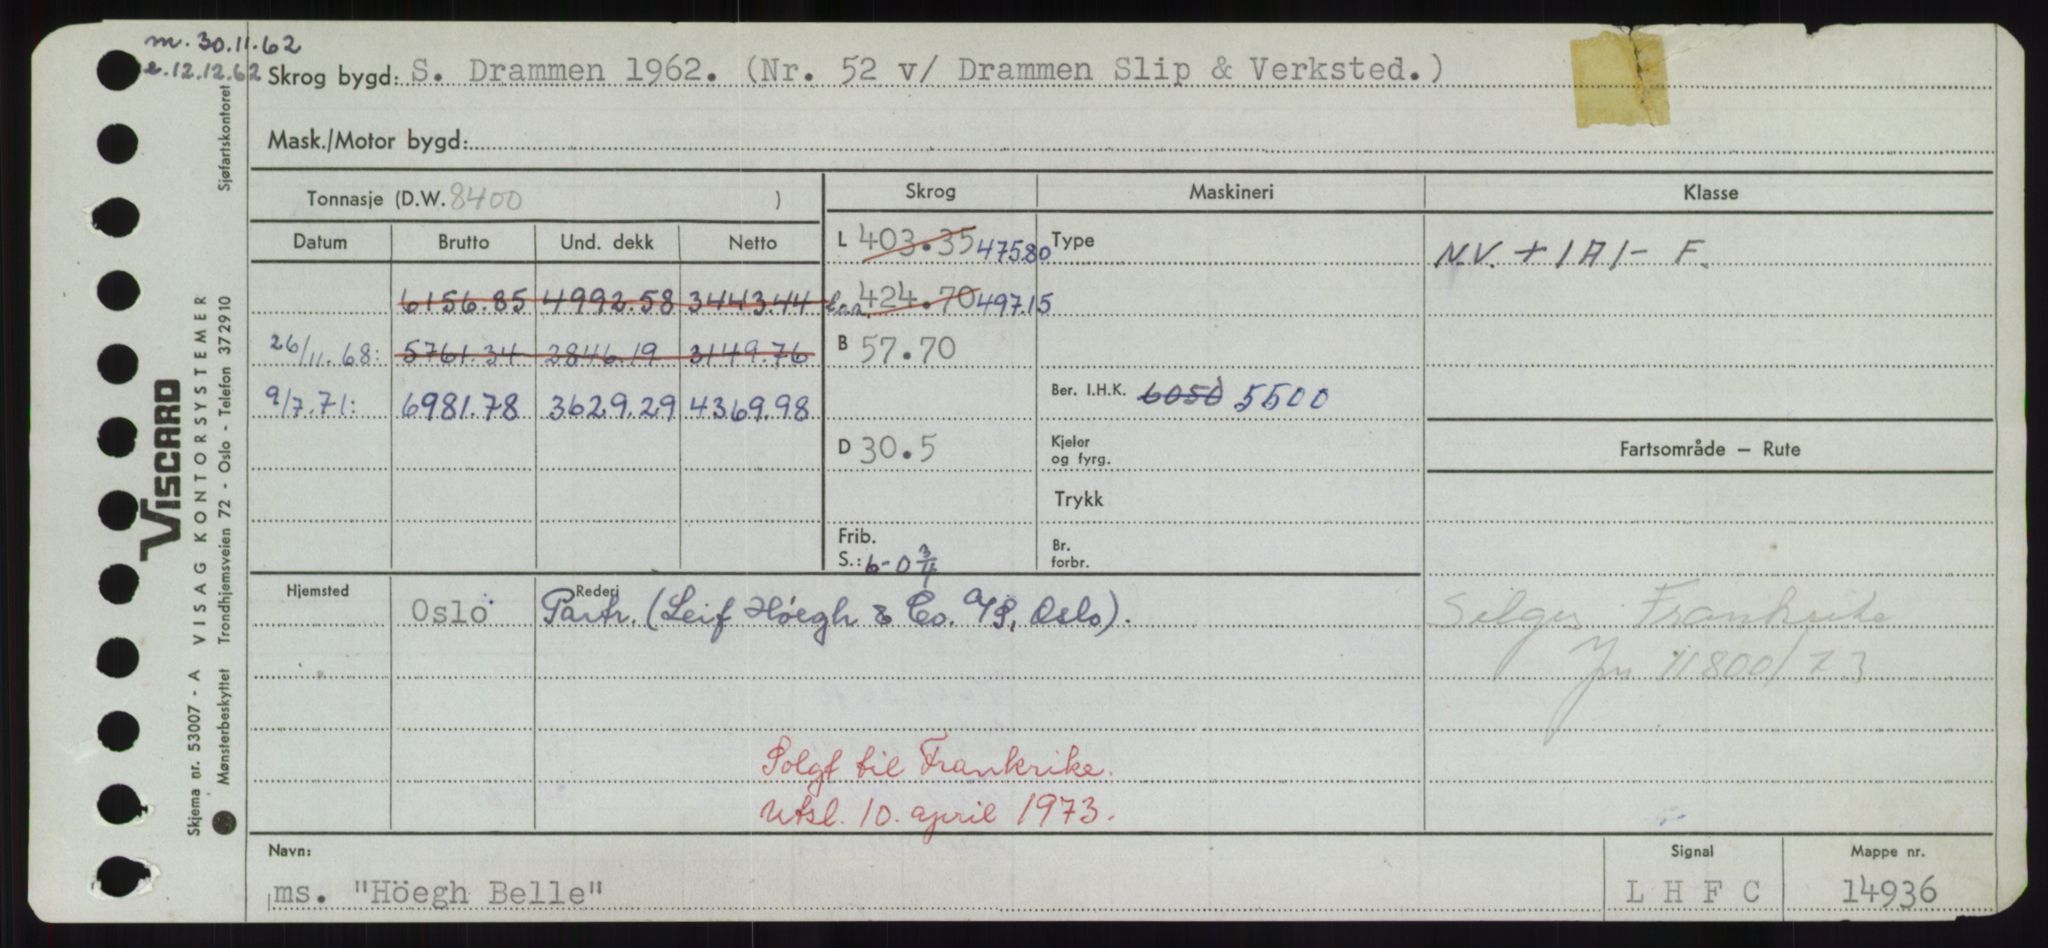 m. 30.11.62
e.12.12.62
Skrog bygd: S. Drammen 1962. (Nr. 52 v/ Drammen Slip & Verksted.)
Mask./Motor bygd:
Tonnasje (D.W. 8400 )
Skrog
Maskineri
Klasse
Datum Brutto Und. dekk Netto
L 403.35 475.80
Type
N.V. + 1A1- F.
6156.85 4992.58 3443.44
l.o.a. 424.70 497.15
26/11.68: 5761.34 2846.19 3149.76
B 57.70
9/7.71: 6981.78 3629.29 4369.98
Ber. I.H.K. 6050 5500
D 30.5
Kjeler
og fyrg.
Fartsområde — Rute
Trykk
Frib.
S.: 6-0 3/4
Br.
forbr.
Hjemsted
Rederi
Oslo
Partr. (Leif Höegh & Co. A/S, Oslo).
Selges Frankrike
11800/73
Solgt til Frankrike.
Utsl. 10. april 1973.
Navn:
ms. "Höegh Belle"
Signal
L H F C
Mappe nr.
14936
VISCARD
VISAG KONTORSYSTEMER
Sjøfartskontoret
Trondhjemsveien 72 - Oslo - Telefon 372910
Skjema nr. 53007 - A
Mønsterbeskyttet